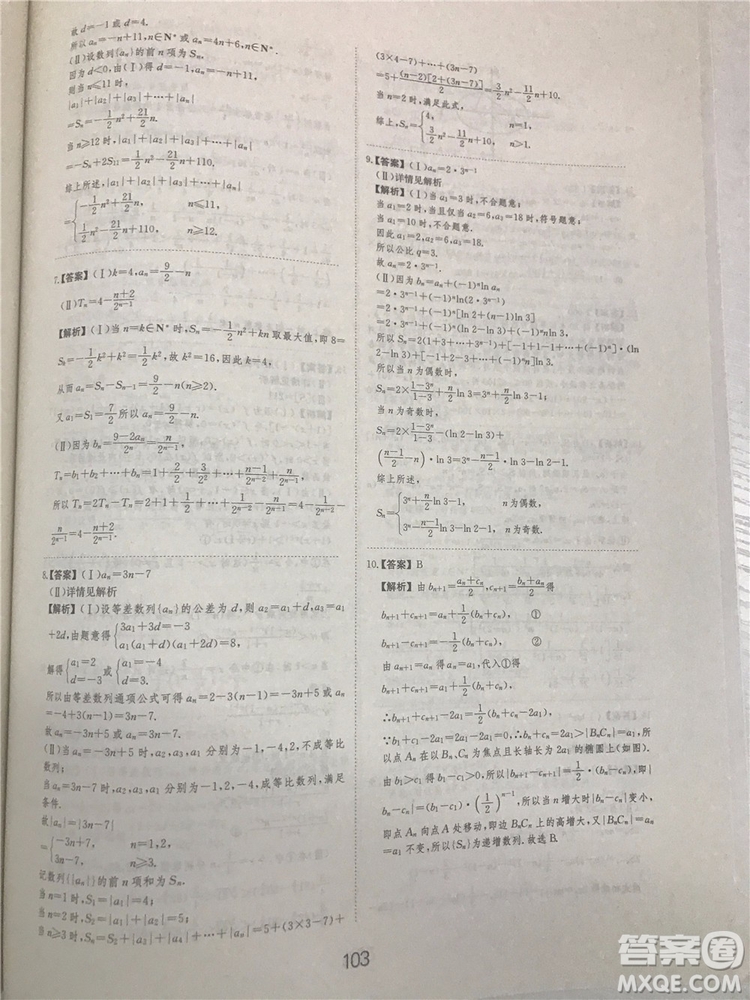 故d=-1或d=4.
所以aₙ=-n+11,n∈N*或aₙ=4n+6,n∈N*.
(Ⅱ)设数列{aₙ}的前n项为Sₙ.
因为d<0,由(Ⅰ)得d=-1,aₙ=-n+11,
则当n≤11时,
|a₁|+|a₂|+|a₃|+…+|aₙ|
=Sₙ=-1/2n²+21/2n.
当n≥12时,|a₁|+|a₂|+|a₃|+…+|aₙ|
=-Sₙ+2S₁₁=1/2n²-21/2n+110.
综上所述,|a₁|+|a₂|+|a₃|+…+|aₙ|
={-1/2n²+21/2n, n≤11,
1/2n²-21/2n+110, n≥12.
7.【答案】(Ⅰ)k=4,aₙ=9/2-n
(Ⅱ)Tₙ=4-(n+2)/2ⁿ⁻¹
【解析】(Ⅰ)当n=k∈N*时,Sₙ=-1/2n²+kn取最大值,即8=
Sₖ=-1/2k²+k²=1/2k²,故k²=16,因此k=4.
从而aₙ=Sₙ-Sₙ₋₁=9/2-n(n≥2).
又a₁=S₁=7/2所以aₙ=9/2-n.
(Ⅱ)因为bₙ=(9-2aₙ)/2ⁿ=n/2ⁿ⁻¹
Tₙ=b₁+b₂+…+bₙ=1+2/2+3/2²+…+(n-1)/2ⁿ⁻²+n/2ⁿ⁻¹
所以Tₙ=2Tₙ-Tₙ=2+1+1/2+…+1/2ⁿ⁻²-n/2ⁿ⁻¹=4-1/2ⁿ⁻²-
n/2ⁿ⁻¹=4-(n+2)/2ⁿ⁻¹
8.【答案】(Ⅰ)aₙ=3n-7
(Ⅱ)详情见解析
【解析】(Ⅰ)设等差数列{aₙ}的公差为d,则a₂=a₁+d,a₃=a₁
+2d,由题意得{3a₁+3d=-3
a₁(a₁+d)(a₁+2d)=8,
解得{a₁=2
d=-3 或{a₁=-4
d=3.
所以由等差数列通项公式可得aₙ=2-3(n-1)=-3n+5或aₙ
=-4+3(n-1)=3n-7.
故aₙ=-3n+5或aₙ=3n-7.
(Ⅱ)当aₙ=-3n+5时,a₂,a₃,a₁分别为-1,-4,2,不成等比
数列;
当aₙ=3n-7时,a₂,a₃,a₁分别为-1,2,-4,成等比数列,满足
条件.
故|aₙ|=|3n-7|
={-3n+7, n=1,2,
3n-7, n≥3.
记数列{|aₙ|}的前n项和为Sₙ.
当n=1时,S₁=|a₁|=4;
当n=2时,S₂=|a₁|+|a₂|=5;
当n≥3时,Sₙ=S₂+|a₃|+|a₄|+…+|aₙ|=5+(3×3-7)+
(3×4-7)+…+(3n-7)
=5+(n-2)[2+(3n-7)]/2=3/2n²-11/2n+10.
当n=2时,满足此式,
综上,Sₙ={4, n=1,
3/2n²-11/2n+10, n>1.
9.【答案】(Ⅰ)aₙ=2·3ⁿ⁻¹
(Ⅱ)详情见解析
【解析】(Ⅰ)当a₁=3时,不合题意;
当a₁=2时,当且仅当a₂=6,a₃=18时,符号题意;
当a₁=10时,不合题意.
因此a₁=2,a₂=6,a₃=18.
所以公比q=3.
故aₙ=2·3ⁿ⁻¹.
(Ⅱ)因为bₙ=aₙ+(-1)ⁿln aₙ
=2·3ⁿ⁻¹+(-1)ⁿln(2·3ⁿ⁻¹)
=2·3ⁿ⁻¹+(-1)ⁿ[ln2+(n-1)ln3]
=2·3ⁿ⁻¹+(-1)ⁿ(ln2-ln3)+(-1)ⁿnln3,
所以Sₙ=2(1+3+…+3ⁿ⁻¹)+[-1+1-1+…+(-1)ⁿ]·
(ln2-ln3)+[-1+2-3+…+(-1)ⁿn]ln3.
所以当n为偶数时,
Sₙ=2×(1-3ⁿ)/(1-3)+n/2 ln3=3ⁿ+n/2 ln3-1.
当n为奇数时,
Sₙ=2×(1-3ⁿ)/(1-3)-(ln2-ln3)+
((n-1)/2-n)·ln3=3ⁿ-(n-1)/2·ln3-ln2-1.
综上所述,
Sₙ={3ⁿ+n/2 ln3-1, n为偶数,
3ⁿ-(n-1)/2 ln3-ln2-1, n为奇数.
10.【答案】B
【解析】由bₙ₊₁=(aₙ+cₙ)/2,cₙ₊₁=(bₙ+aₙ)/2得
bₙ₊₁+cₙ₊₁=aₙ+1/2(bₙ+cₙ), ①
bₙ₊₁-cₙ₊₁=-1/2(bₙ-cₙ), ②
由aₙ₊₁=aₙ得aₙ=a₁,代入①得
bₙ₊₁+cₙ₊₁=a₁+1/2(bₙ+cₙ),
∴bₙ₊₁+cₙ₊₁-2a₁=1/2(bₙ+cₙ-2a₁),
∵b₁+c₁-2a₁=2a₁-2a₁=0,∴bₙ+cₙ=2a₁>|BₙCₙ|=a₁,所
以点Aₙ在以Bₙ、Cₙ为焦点且长轴长为2a₁的椭圆上(如图).
由b₁>c₁得b₁-c₁>0,所以|bₙ₊₁-cₙ₊₁|=1/2(bₙ-cₙ),即
|bₙ-cₙ|=(b₁-c₁)·(1/2)ⁿ⁻¹,所以当n增大时|bₙ-cₙ|变小,
即点Aₙ向点A处移动,即边BₙCₙ上的高增大,又|BₙCₙ|=aₙ
=a₁不变,所以{Sₙ}为递增数列.故选B.
103
答案圈
MXQE.COM